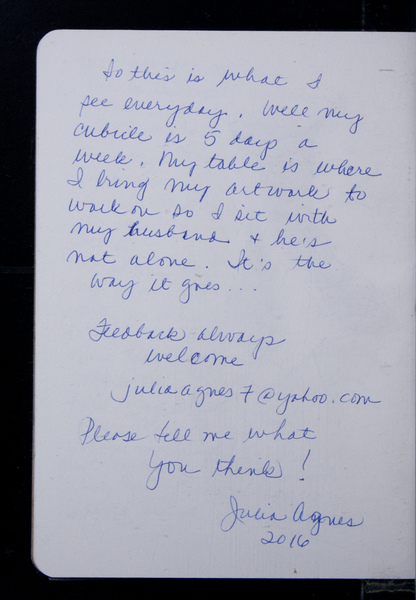 So this is what I
see everyday. Well my
cubicle is 5 days a
week. My table is where
I bring my artwork to
work on so I sit with
my husband & he's
not alone. It's the
way it goes...
Feedback always
welcome
juliaagnes7@yahoo.com
Please tell me what
you think!
Julia Agnes
2016